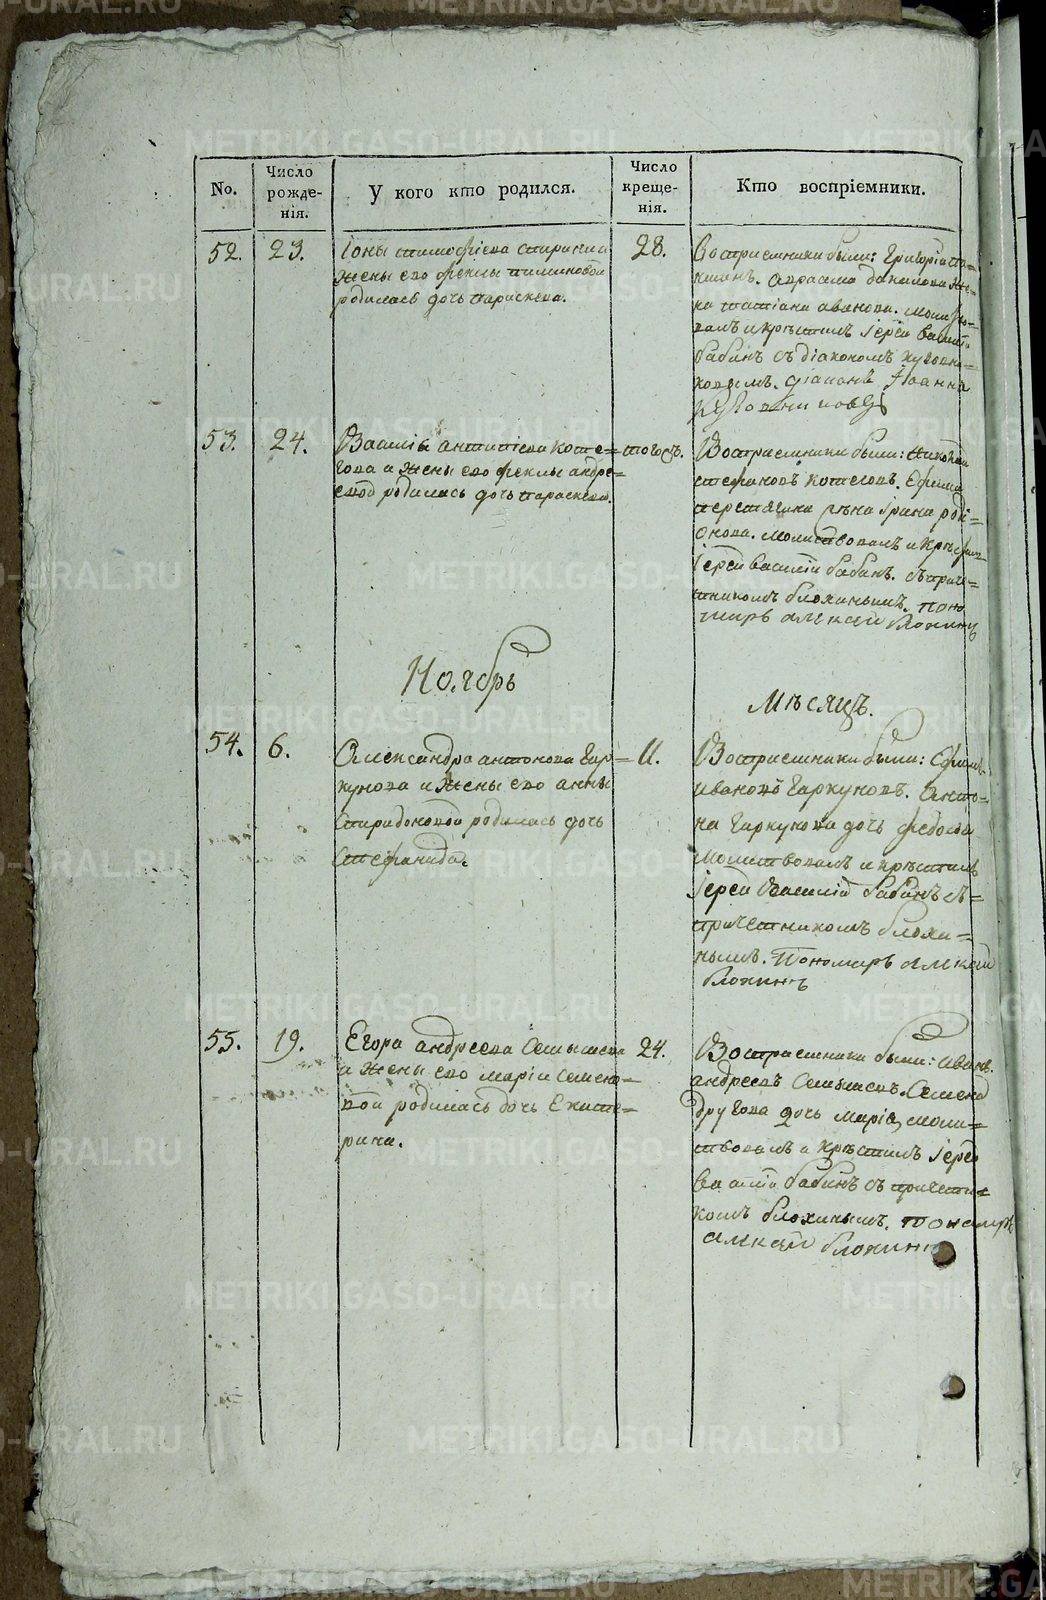 No.
Число рожде-
нія.
У кого кто родился.
Число креще-
нія.
Кто воспріемники.
52. 23.
Іоны тимофѣева
жены ево феклы
родилась дочь параскева.
28.
Восприемники были: Григорій
Авраама данилова же=
на татіана иванова. молитво=
валъ и крѣстилъ Іерей василій
бабинъ съ діакономъ
діаконъ Іоаннъ
53. 24.
Василія антипіева коте=
гова и жены ево феклы андре=
евой родилась дочь параскева.
тогожъ.
Восприемники были: Николай
стефановъ котеговъ. Ефима
жена Ірина роді=
онова. молитвовалъ и крѣстилъ
Іерей василій бабинъ. съ приче=
тникомъ блохинымъ. поно
марь алексей блохинъ
Ноябрь
Мѣсяцъ.
54. 6.
Александра антонова Гар=
кунова и жены ево анны
спиридоновой родилась дочь
стефанида.
11.
Восприемники были: Ефимъ
ивановъ Гаркуновъ. Анто=
на Гаркунова дочь федосья
молитвовалъ и крѣстилъ
Іерей Василій бабинъ съ=
причетникомъ блохи=
нымъ. Пономарь алексей
блохинъ
55. 19.
Егора андреева
и жены ево маріи семено=
вой родилась дочь Екате=
рина.
24.
Восприемники были: иванъ
андреевъ Семена
другова дочь марія, моли=
твовалъ и крѣстилъ Іерей
василій бабинъ съ причетни=
комъ блохинымъ. пономарь
алексей блохинъ
METRIKI.GASO-URAL.RU